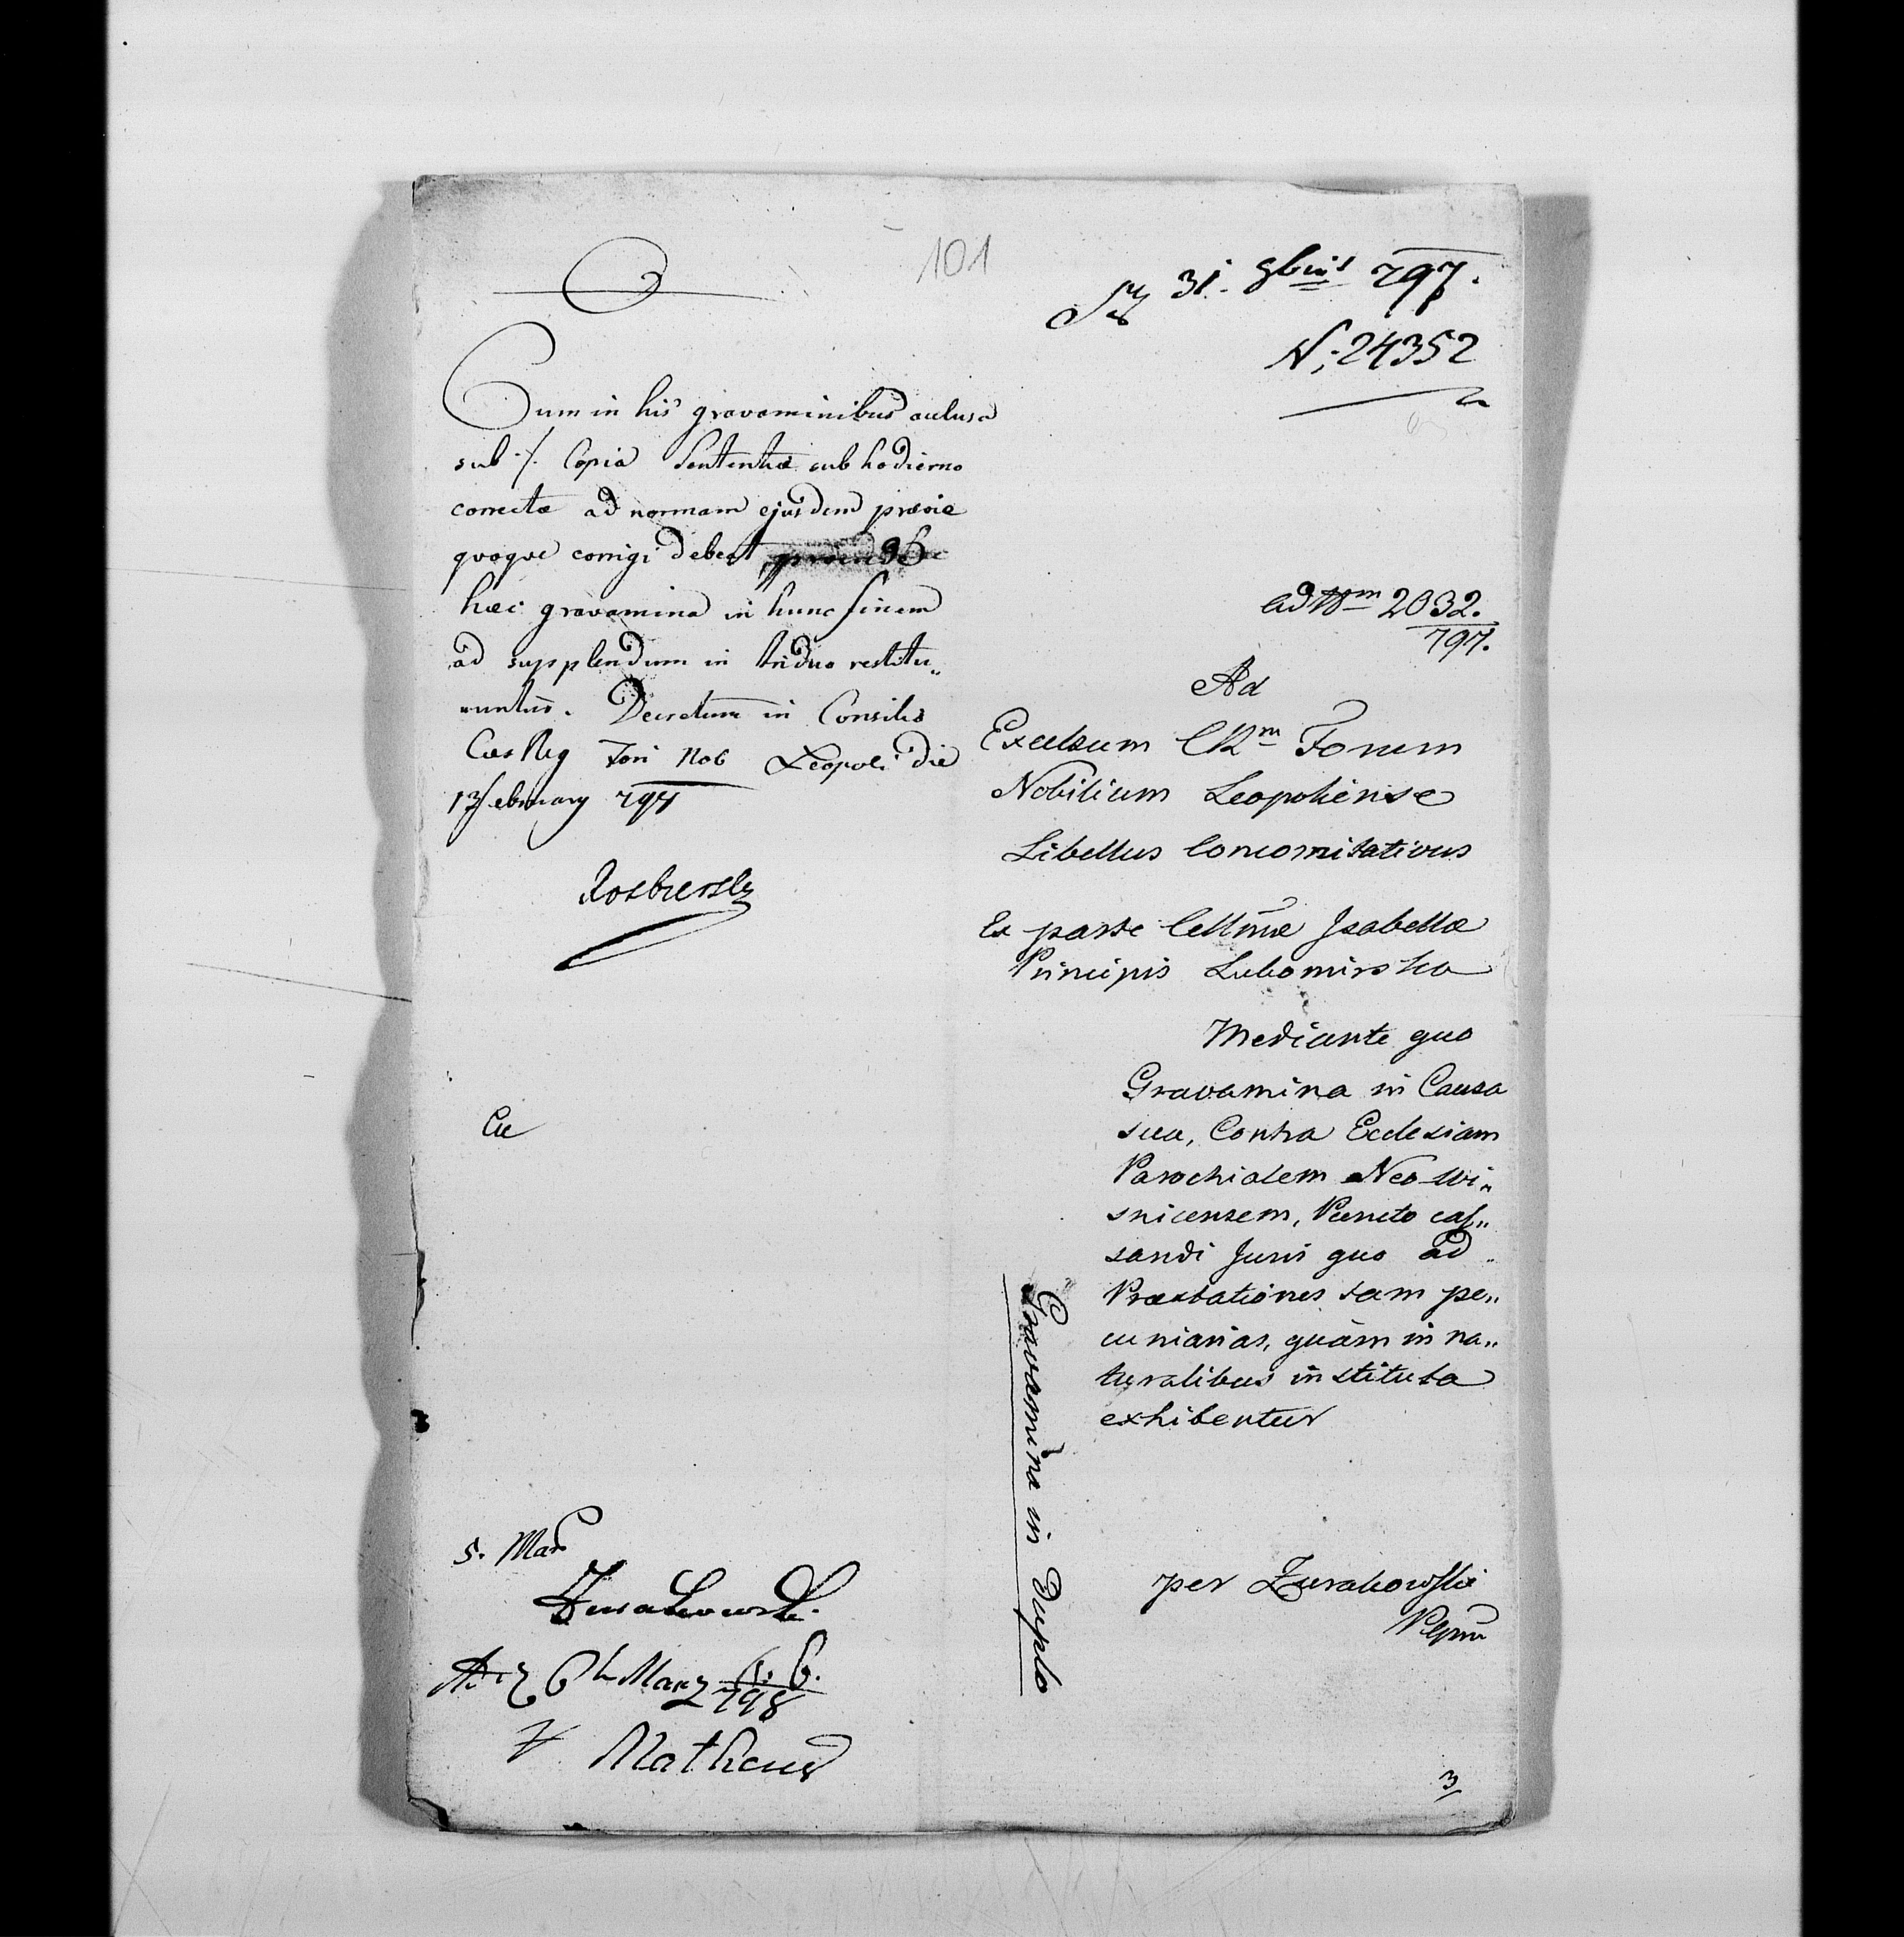 101
31. 8bris 797.
N: 24352
Cum in his gravaminibus aclusa
sub ·/. Copia Sententiæ sub hodierno
correctæ ad normam ejusdem prævie
quoque corrigi debeat,
hæc gravamina in hunc finem
ad supplendum in triduo restitu„
untur. Decretum in Consilio
Cæs Reg Fori Nob Leopoli die
13 february 797
Cu
5. Mar
Zurakowski
6t Marz 798
Matheus
ad Nrm 2032.
797.
Ad
Excelsum CRm Forum
Nobilium Leopoliense
Libellus Concomitativus
Ex parte Cellmæ Isabellæ
Principis Lubomirska
Mediante quo
Gravamina in Causa
sua, Contra Ecclesiam
Parochialem Neo-Wi„
snicensem, Puncto cas„
sandi Juris quo ad
Præstationes tam pe„
cuniarias, quàm in na„
turalibus instituta
exhibentur
Gravamina in Duplo
per Zurakowski
3